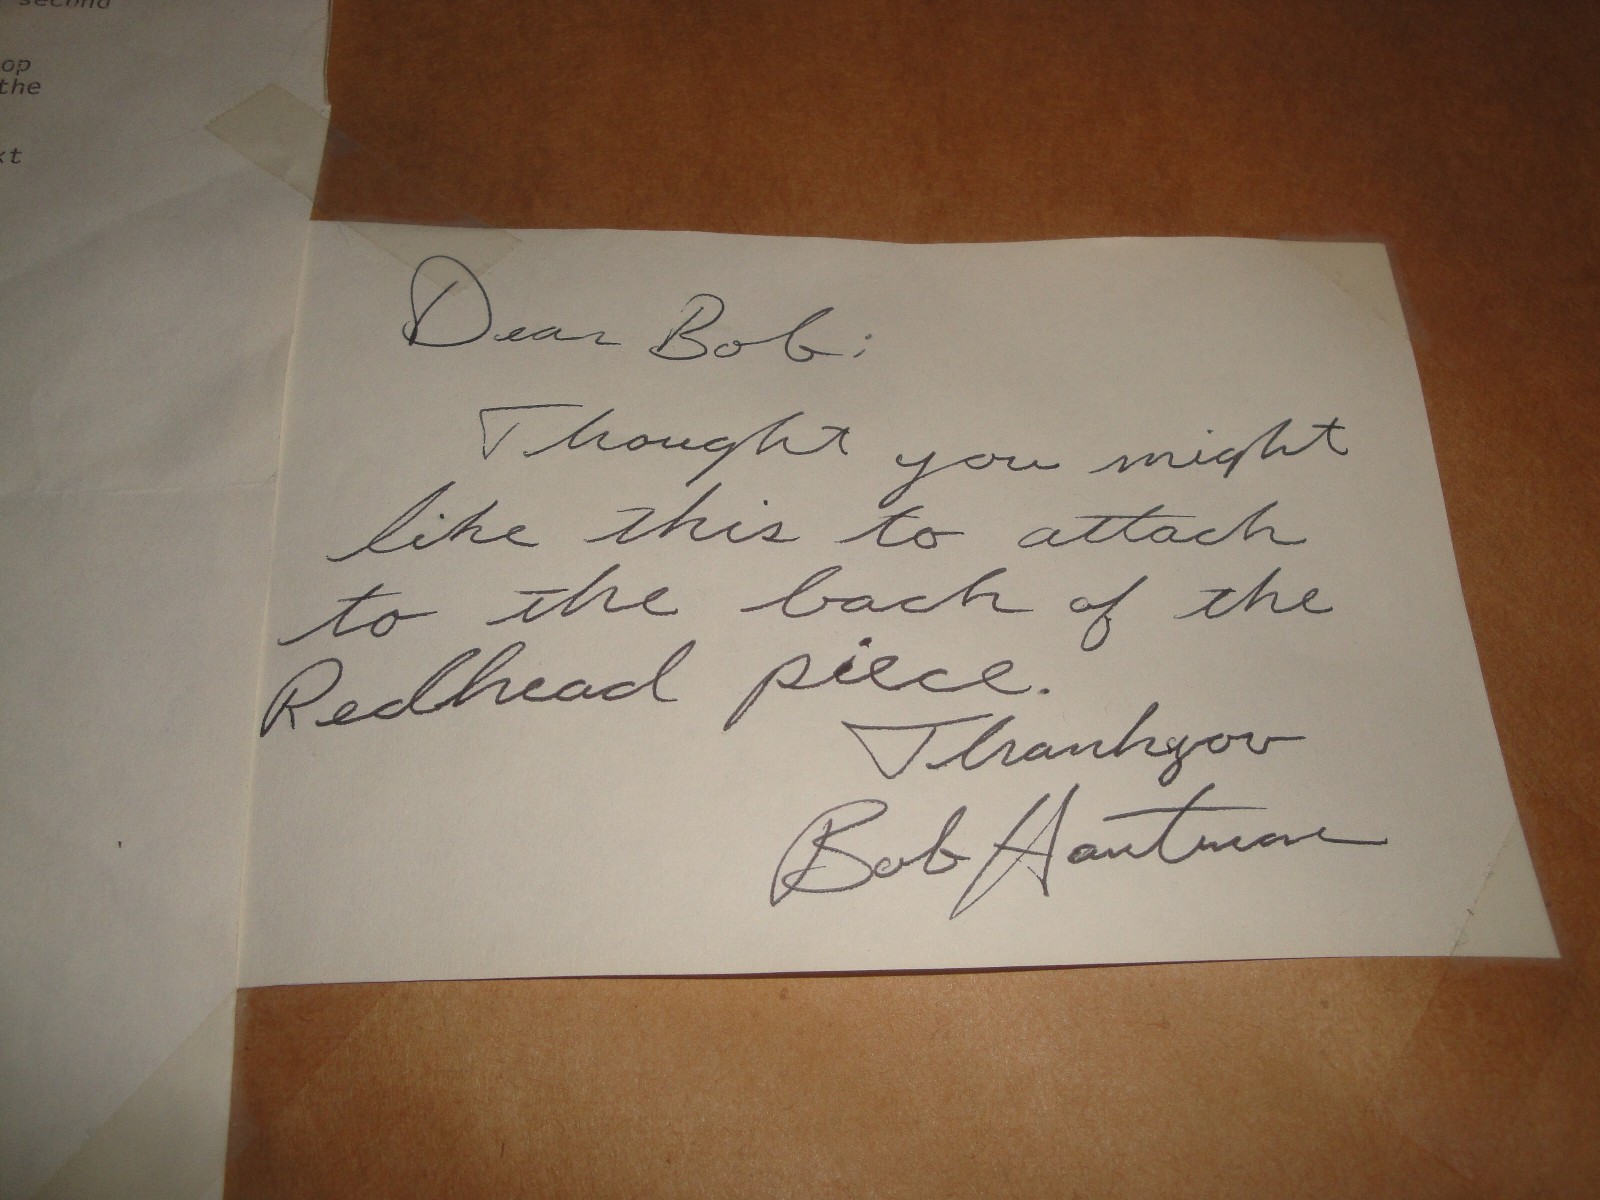 second
op
the
xt
Dear Bob:
Thought you might
like this to attach
to the back of the
Redhead piece.
Thankyou
Bob Hautman